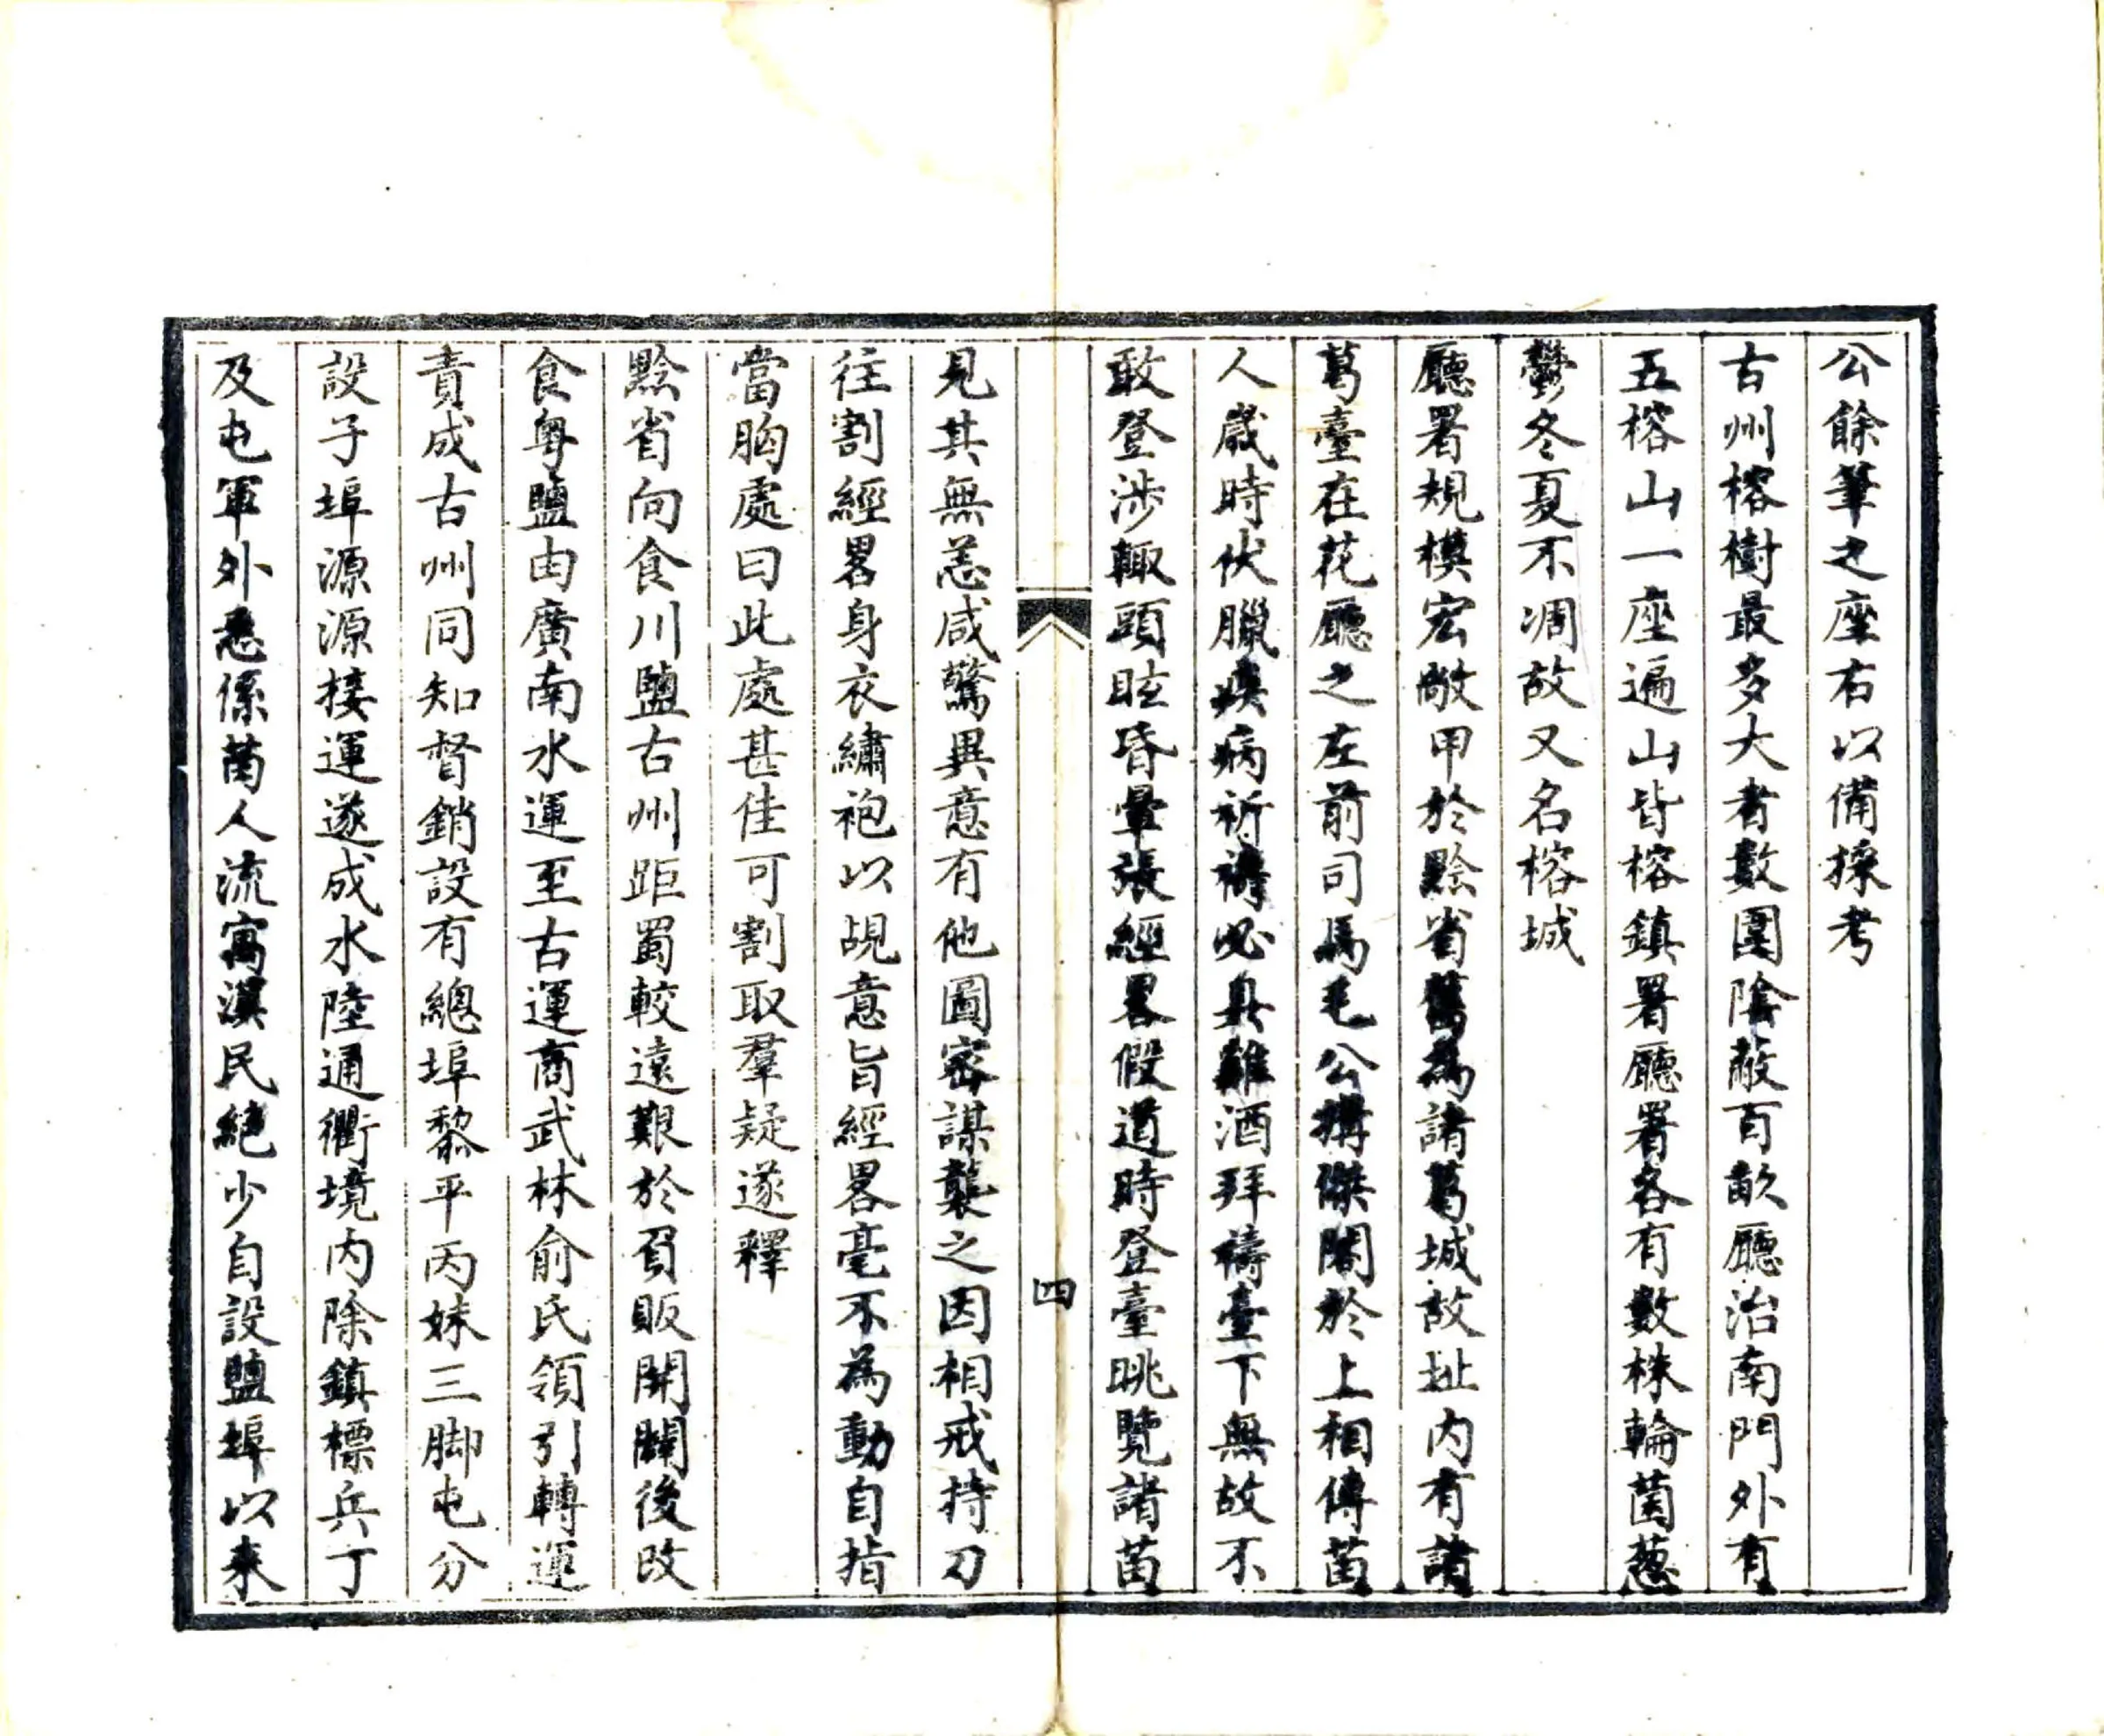 公餘筆之座右以備採考
古州榕樹最多大者數圍陰蔽百畝廳治南門外有
五榕山一座遍山皆榕鎮署廳署各有數株輪菌葱
鬱冬夏不凋故又名榕城
廳署規模宏敞甲於黔省舊為諸葛城故址内有諸
葛臺在花廳之左前司馬毛公搆傑閣於上相傳苗
人歲時伏臘疾病祈禱必具雞酒拜禱臺下無故不
敢登涉輙頭眩昏暈張經畧假道時登臺眺覽諸苗
四
見其無恙咸驚異意有他圖密謀襲之因相戒持刀
往割經畧身衣繡袍以覘意旨經畧毫不為動自指
當胸處曰此處甚佳可割取羣疑遂釋
黔省向食川鹽古州距蜀較遠艱於負販開闢後改
食粤鹽由廣南水運至古運商武林俞氏領引轉運
責成古州同知督銷設有總埠黎平丙妹三脚屯分
設子埠源源接運遂成水陸通衢境内除鎮標兵丁
及屯軍外悉係苗人流寓漢民絶少自設鹽埠以来